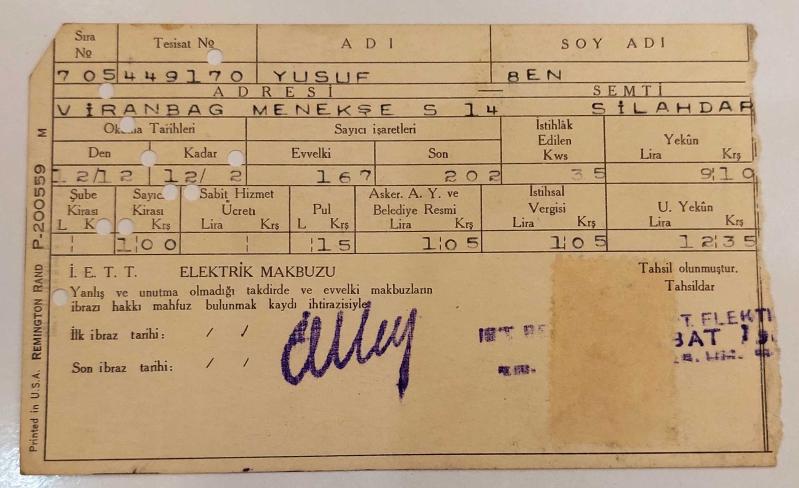 Sıra No Tesisat No ADI SOY ADI
705449170 YUSUF BEN
ADRESİ — SEMTİ
VİRANBAG MENEKŞE S 14 SİLAHDAR
Okuma Tarihleri Sayıcı işaretleri İstihlâk Edilen Kws Yekûn
Den Kadar Evvelki Son Lira Krş
12/12 12/ 2 167 202 35 9 10
Şube Kirası Sayıcı Kirası Sabit Hizmet Ücreti Pul Asker. A. Y. ve Belediye Resmi İstihsal Vergisi U. Yekûn
L K Krş Lira Krş L Krş Lira Krş Lira Krş Lira Krş
1 00 15 1 05 1 05 12 35
İ. E. T. T. ELEKTRİK MAKBUZU Tahsil olunmuştur.
Yanlış ve unutma olmadığı takdirde ve evvelki makbuzların Tahsildar
ibrazı hakkı mahfuz bulunmak kaydı ihtirazisiyle
İlk ibraz tarihi: / /
Son ibraz tarihi: / /
T. ELEKT
BAT
Printed in U.S.A. REMINGTON RAND P-200559 M